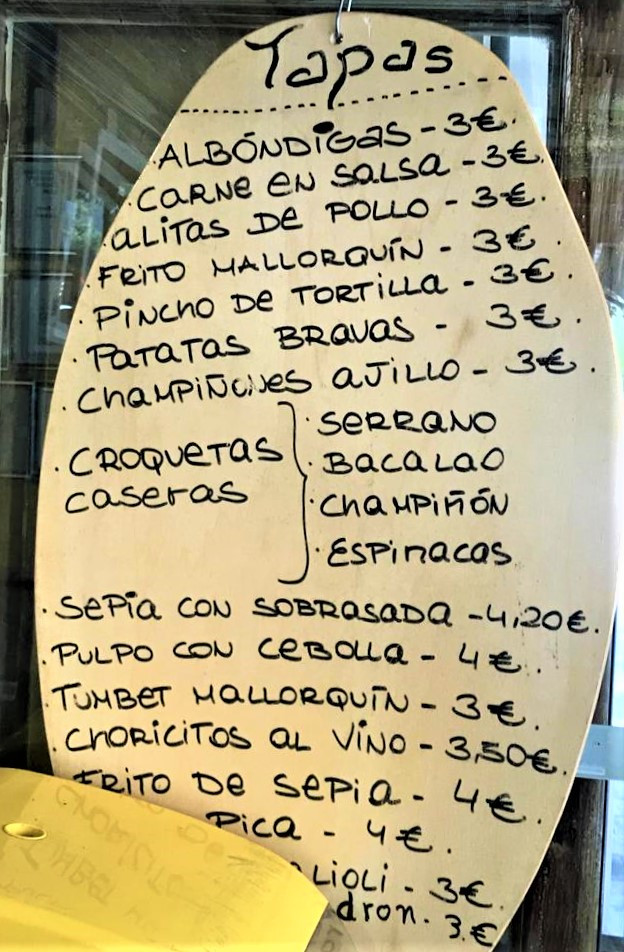 Tapas
. ALBÓNDIGAS - 3€.
. CARNE EN SALSA - 3€.
. ALITAS DE POLLO - 3€.
. FRITO MALLORQUÍN - 3€.
. PINCHO DE TORTILLA - 3€.
. PATATAS BRAVAS - 3€.
. CHAMPIÑONES AJILLO - 3€.
. CROQUETAS CASERAS
. SERRANO
. BACALAO
. CHAMPIÑÓN
. ESPINACAS
. SEPIA CON SOBRASADA - 4,20€.
. PULPO CON CEBOLLA - 4€.
. TUMBET MALLORQUÍN - 3€.
. CHORICITOS AL VINO - 3,50€.
FRITO DE SEPIA - 4€.
PICA - 4€.
LIOLI - 3€.
dron. 3.€